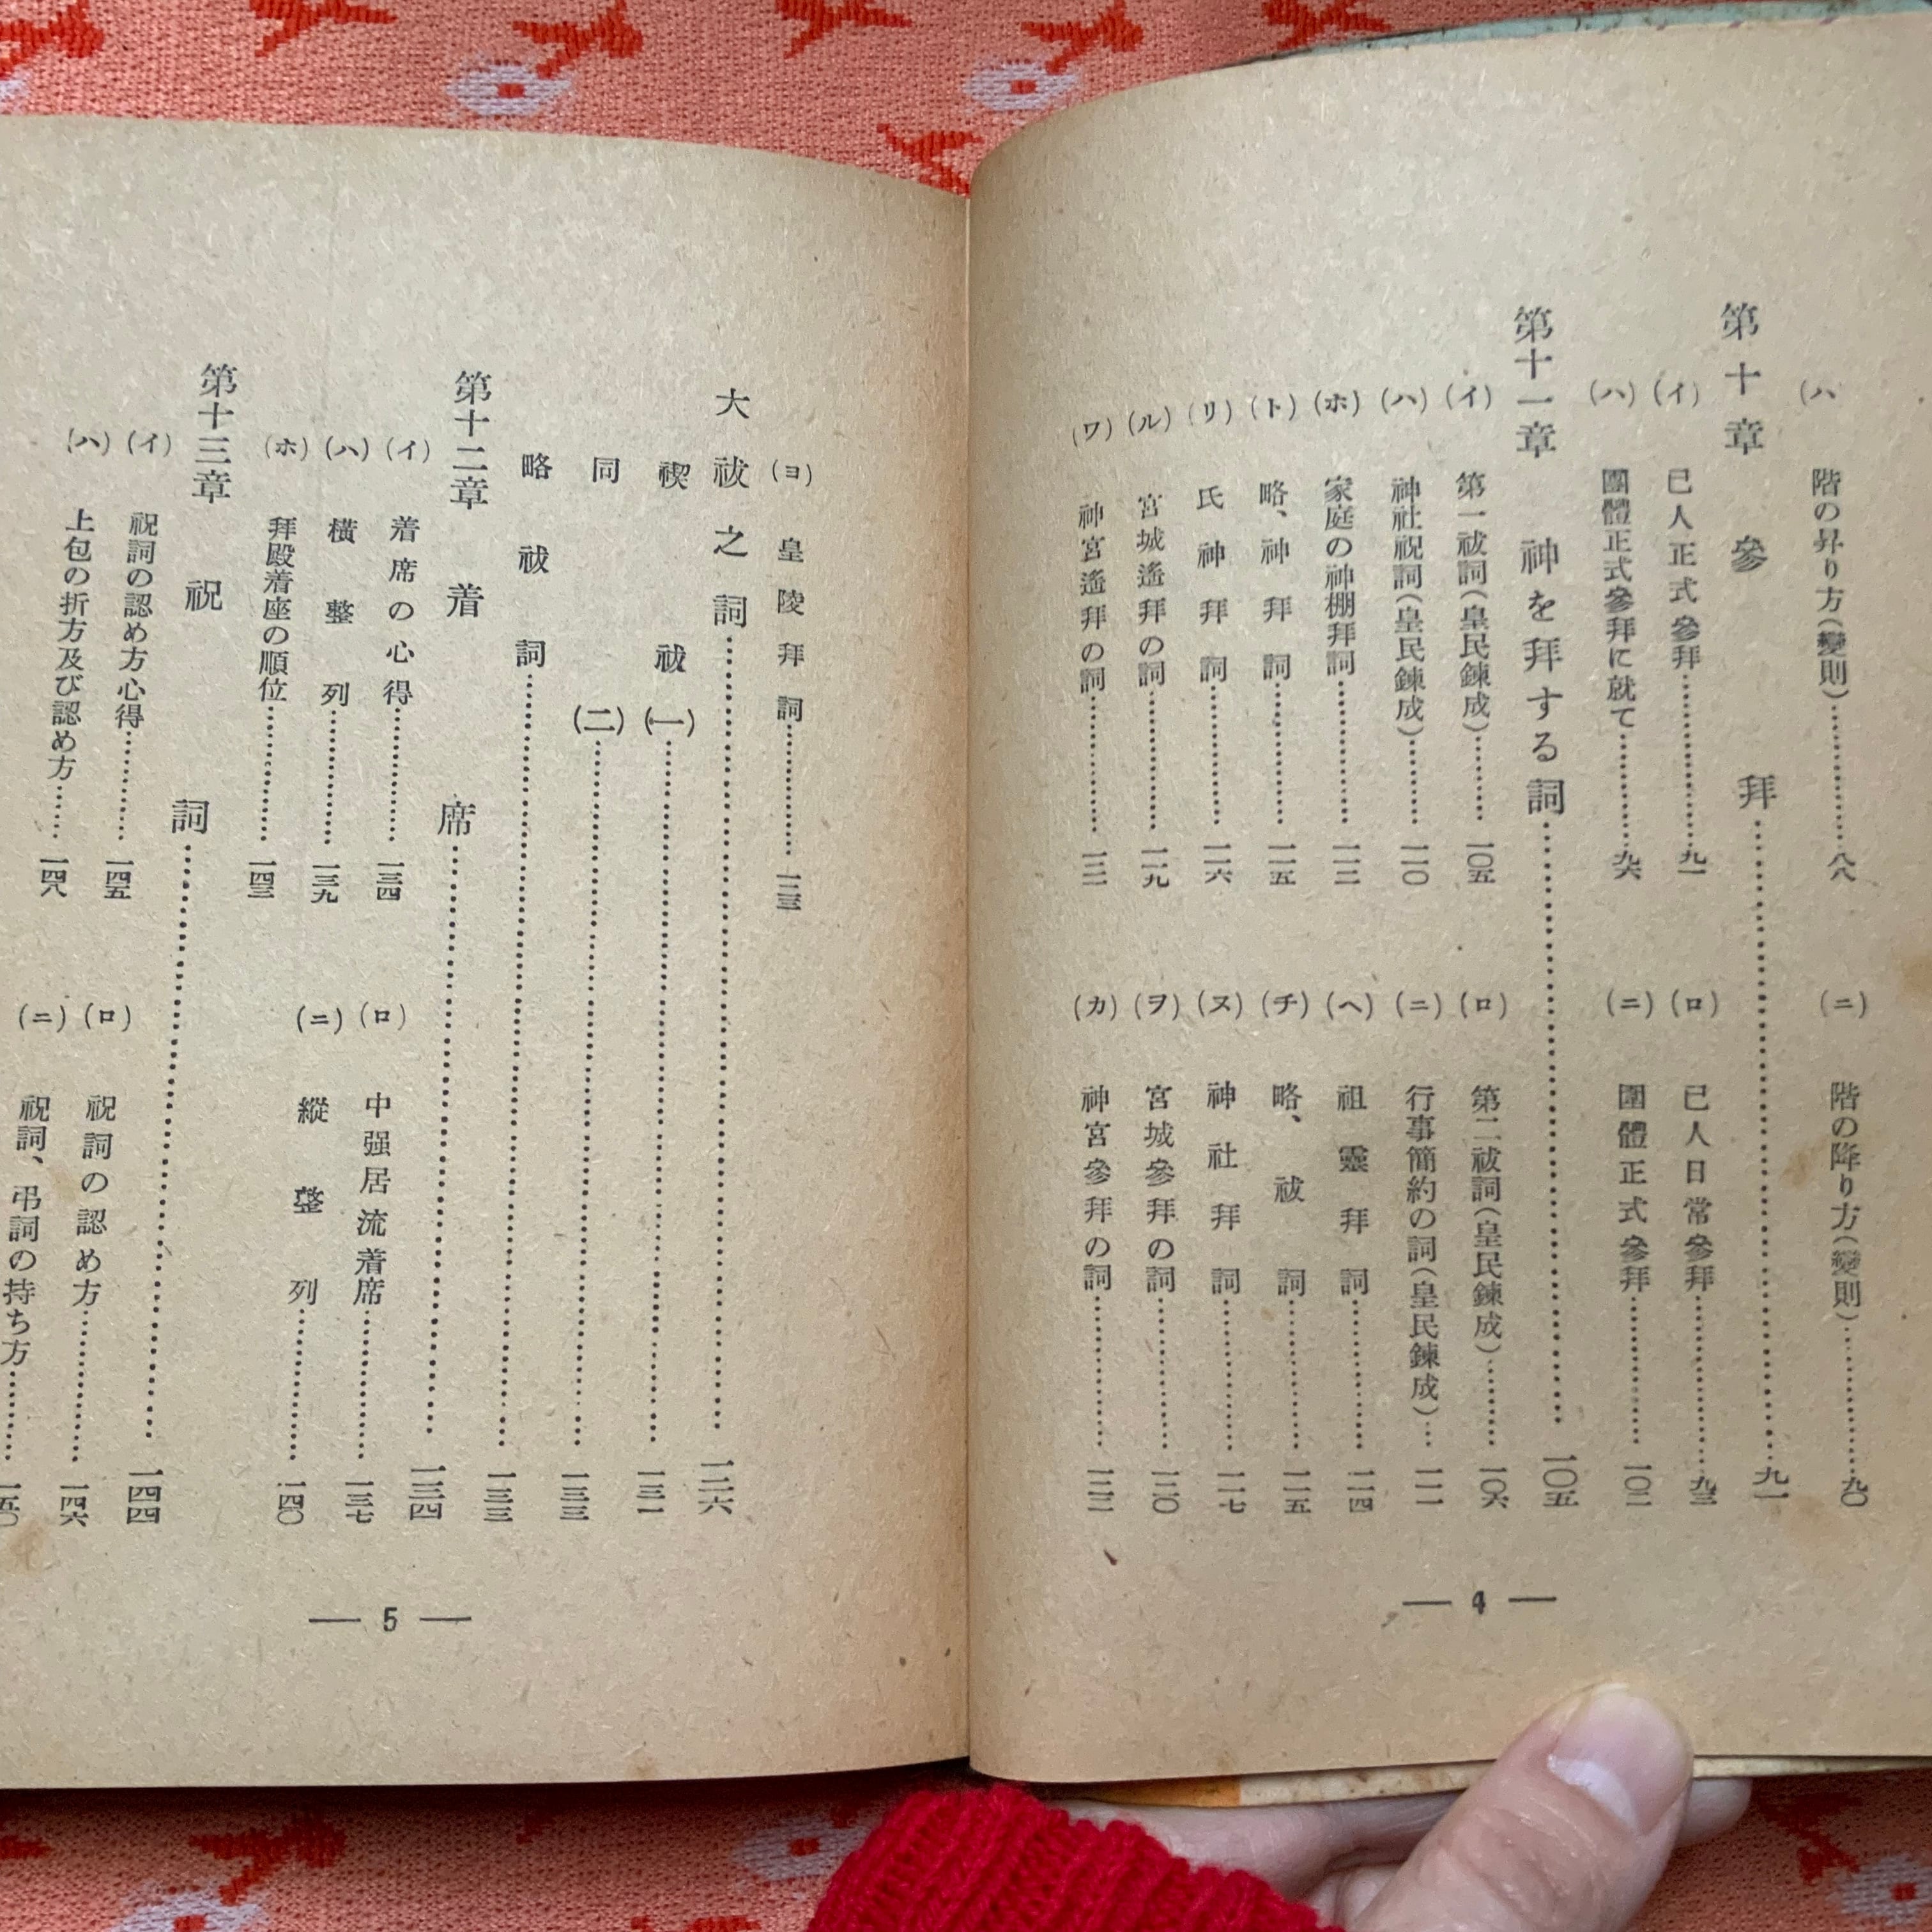 (ハ 階の昇り方(變則)…………八八
(ニ) 階の降り方(變則)…………九〇
第十章 參拜…………九一
(イ) 已人正式參拜…………九一
(ロ) 已人日常參拜…………九三
(ハ) 團體正式參拜に就て…………九六
(ニ) 團體正式參拜…………一〇二
第十一章 神を拜する詞…………一〇五
(イ) 第一祓詞(皇民鍊成)…………一〇五
(ロ) 第二祓詞(皇民鍊成)…………一〇六
(ハ) 神社祝詞(皇民鍊成)…………一一〇
(ニ) 行事簡約の詞(皇民鍊成)……一一一
(ホ) 家庭の神棚拜詞…………一一二
(ヘ) 祖靈拜詞…………一一四
(ト) 略、神拜詞…………一一五
(チ) 略、祓詞…………一一五
(リ) 氏神拜詞…………一一六
(ヌ) 神社拜詞…………一一七
(ル) 宮城遙拜の詞…………一一九
(ヲ) 宮城參拜の詞…………一二〇
(ワ) 神宮遙拜の詞…………一二一
(カ) 神宮參拜の詞…………一二二
— 4 —
(ヨ) 皇陵拜詞…………一二三
大祓之詞…………一二六
禊祓(一)…………一三一
同(二)…………一三三
略祓詞…………一三三
第十二章 着席…………一三四
(イ) 着席の心得…………一三四
(ロ) 中强居流着席…………一三七
(ハ) 橫整列…………一三九
(ニ) 縱整列…………一四〇
(ホ) 拜殿着座の順位…………一四三
第十三章 祝詞…………一四四
(イ) 祝詞の認め方心得…………一四五
(ロ) 祝詞の認め方…………一四六
(ハ) 上包の折方及び認め方……一四八
(ニ) 祝詞、弔詞の持ち方…………一五〇
— 5 —